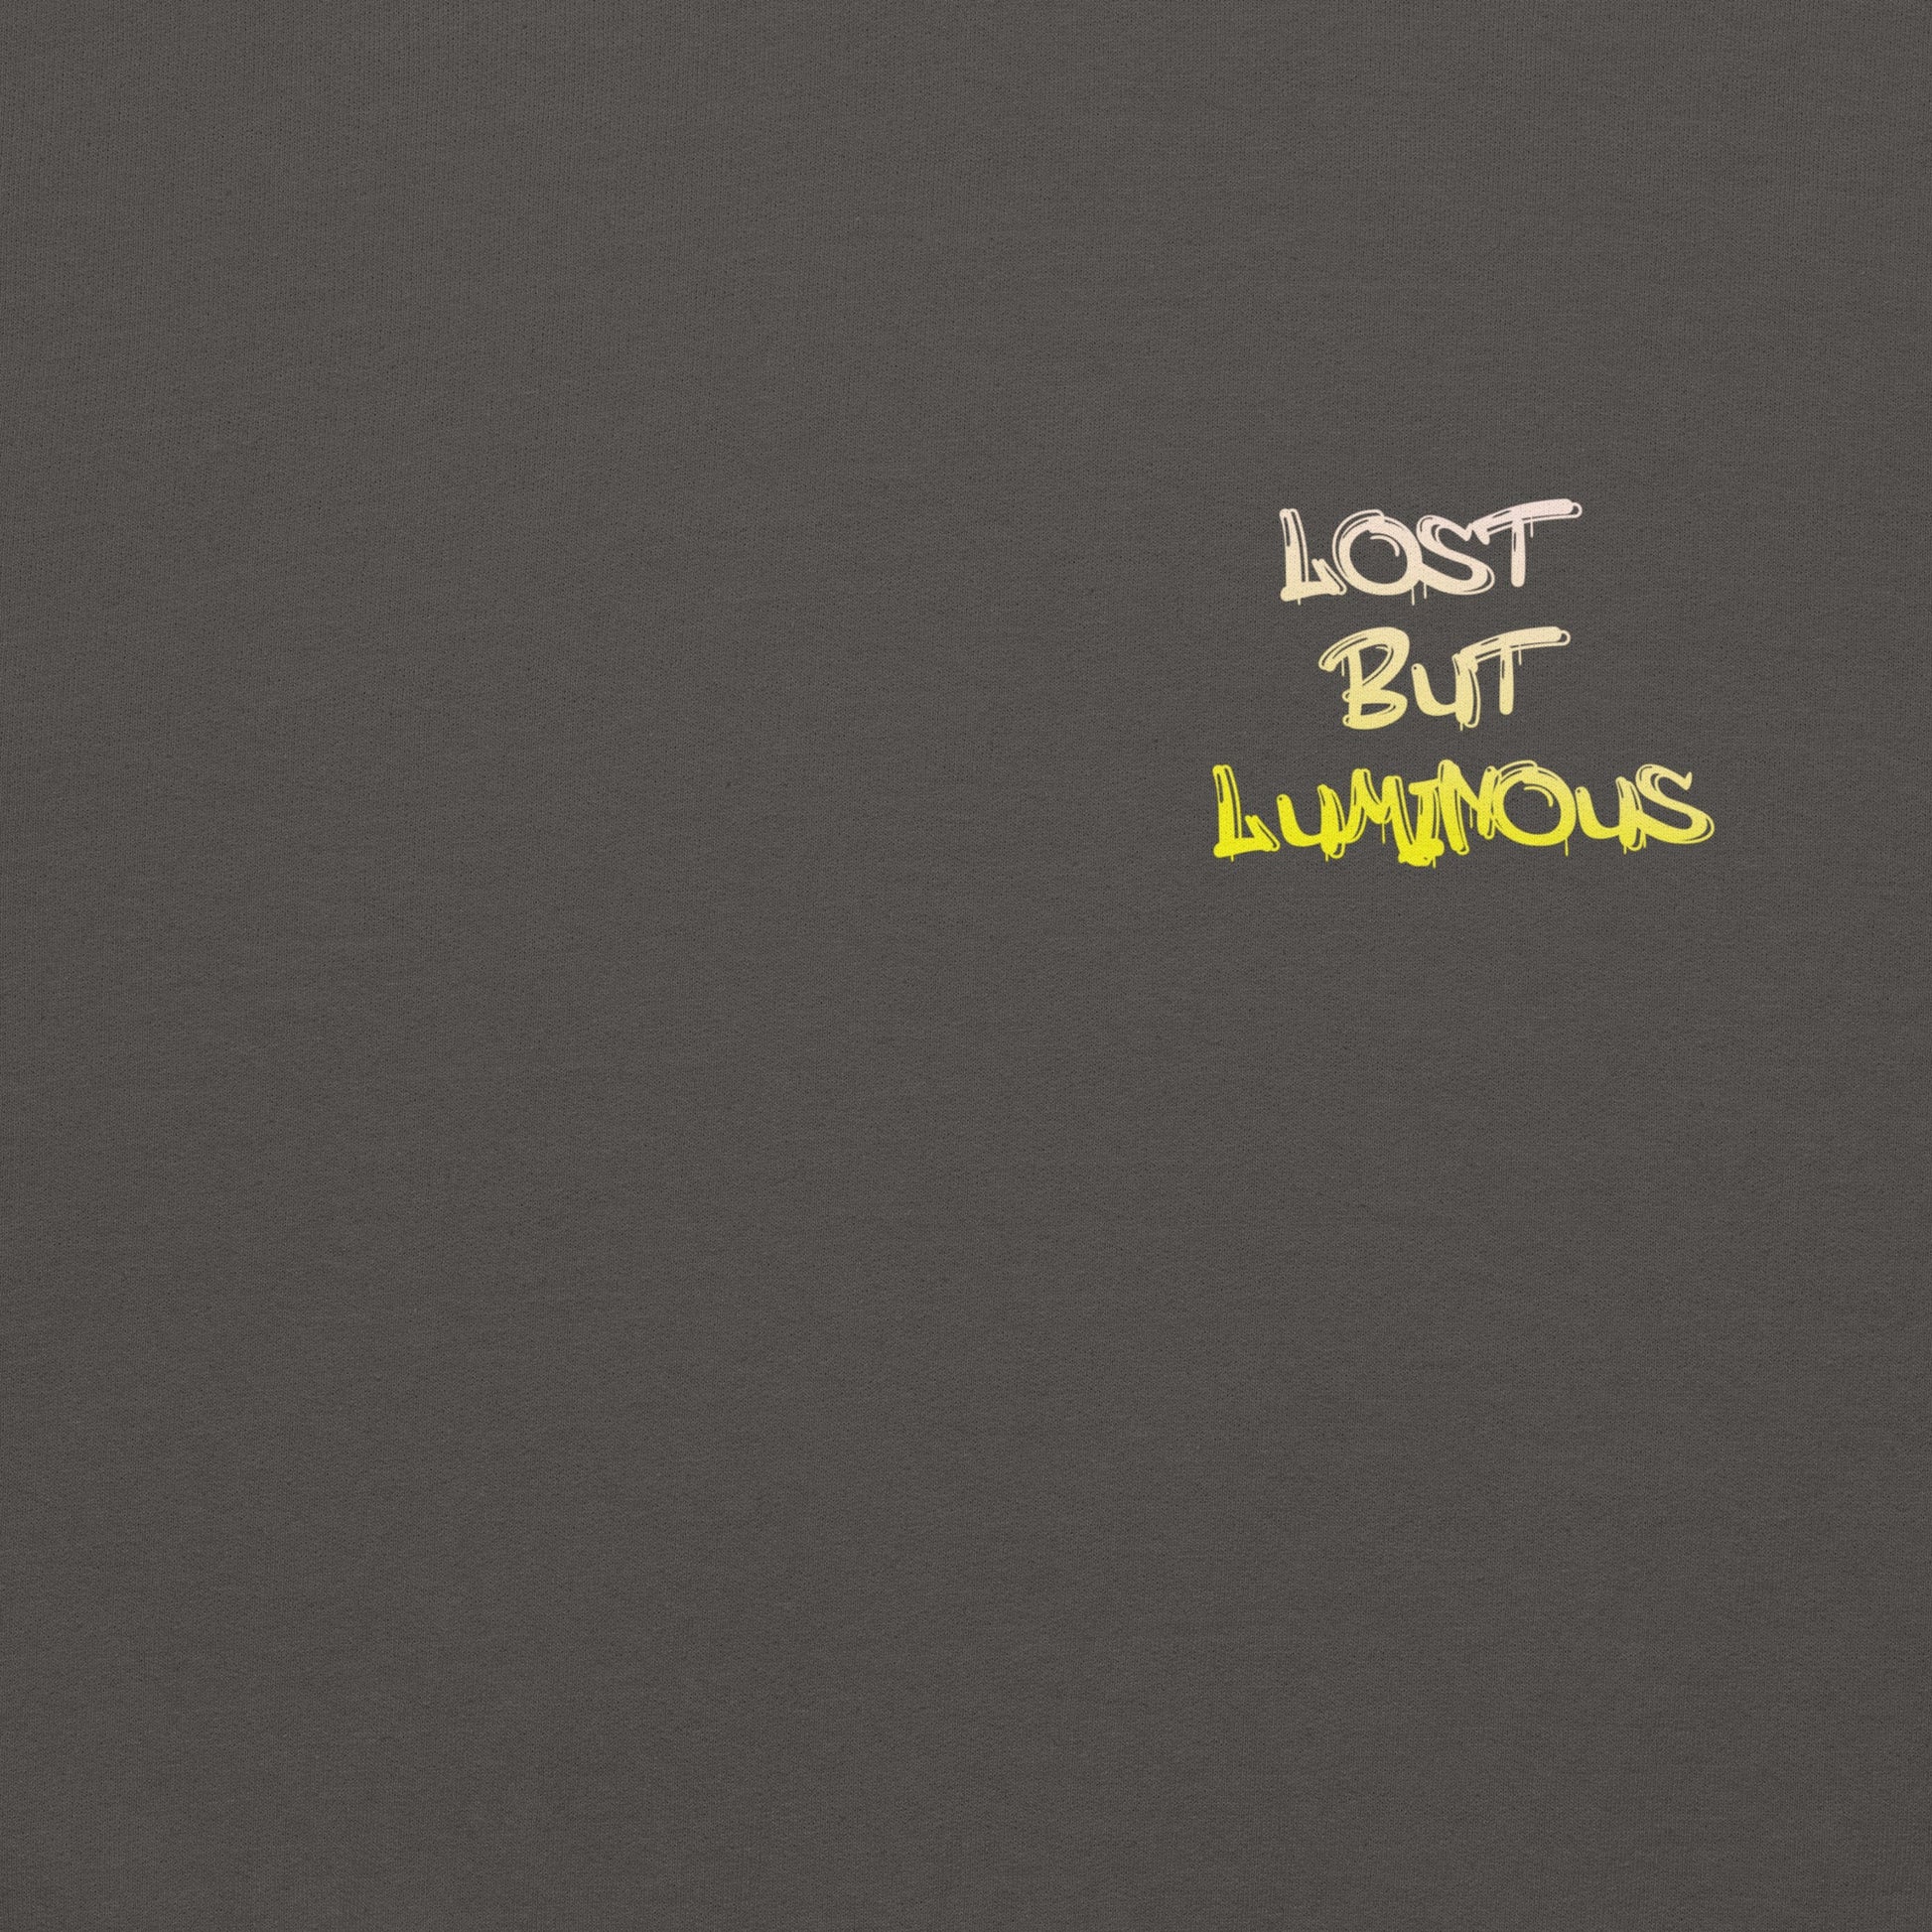 Lost
But
Luminous